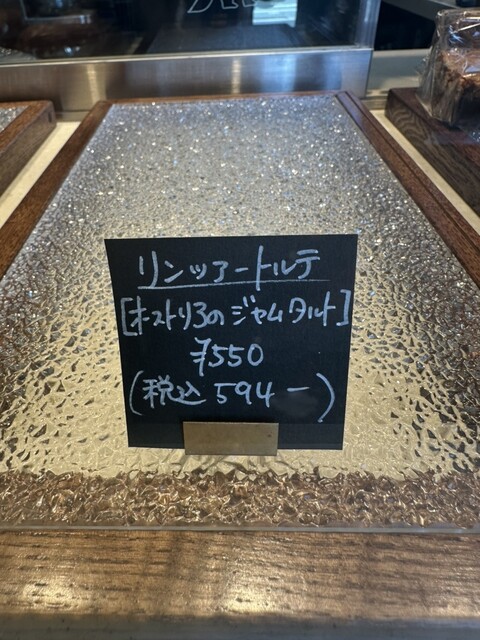 リンツァートルテ
[オーストリアのジャムタルト]
¥550
(税込 594ー)